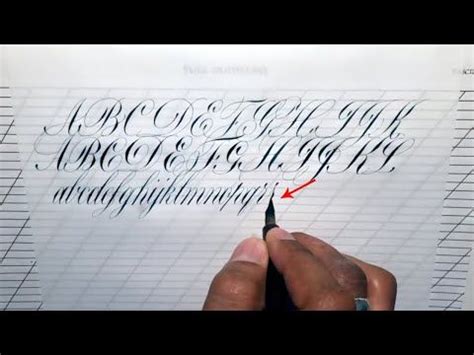 ABCDEFGHIJK
ABCDEFGHIJKL
abcdefghijklmnopqr